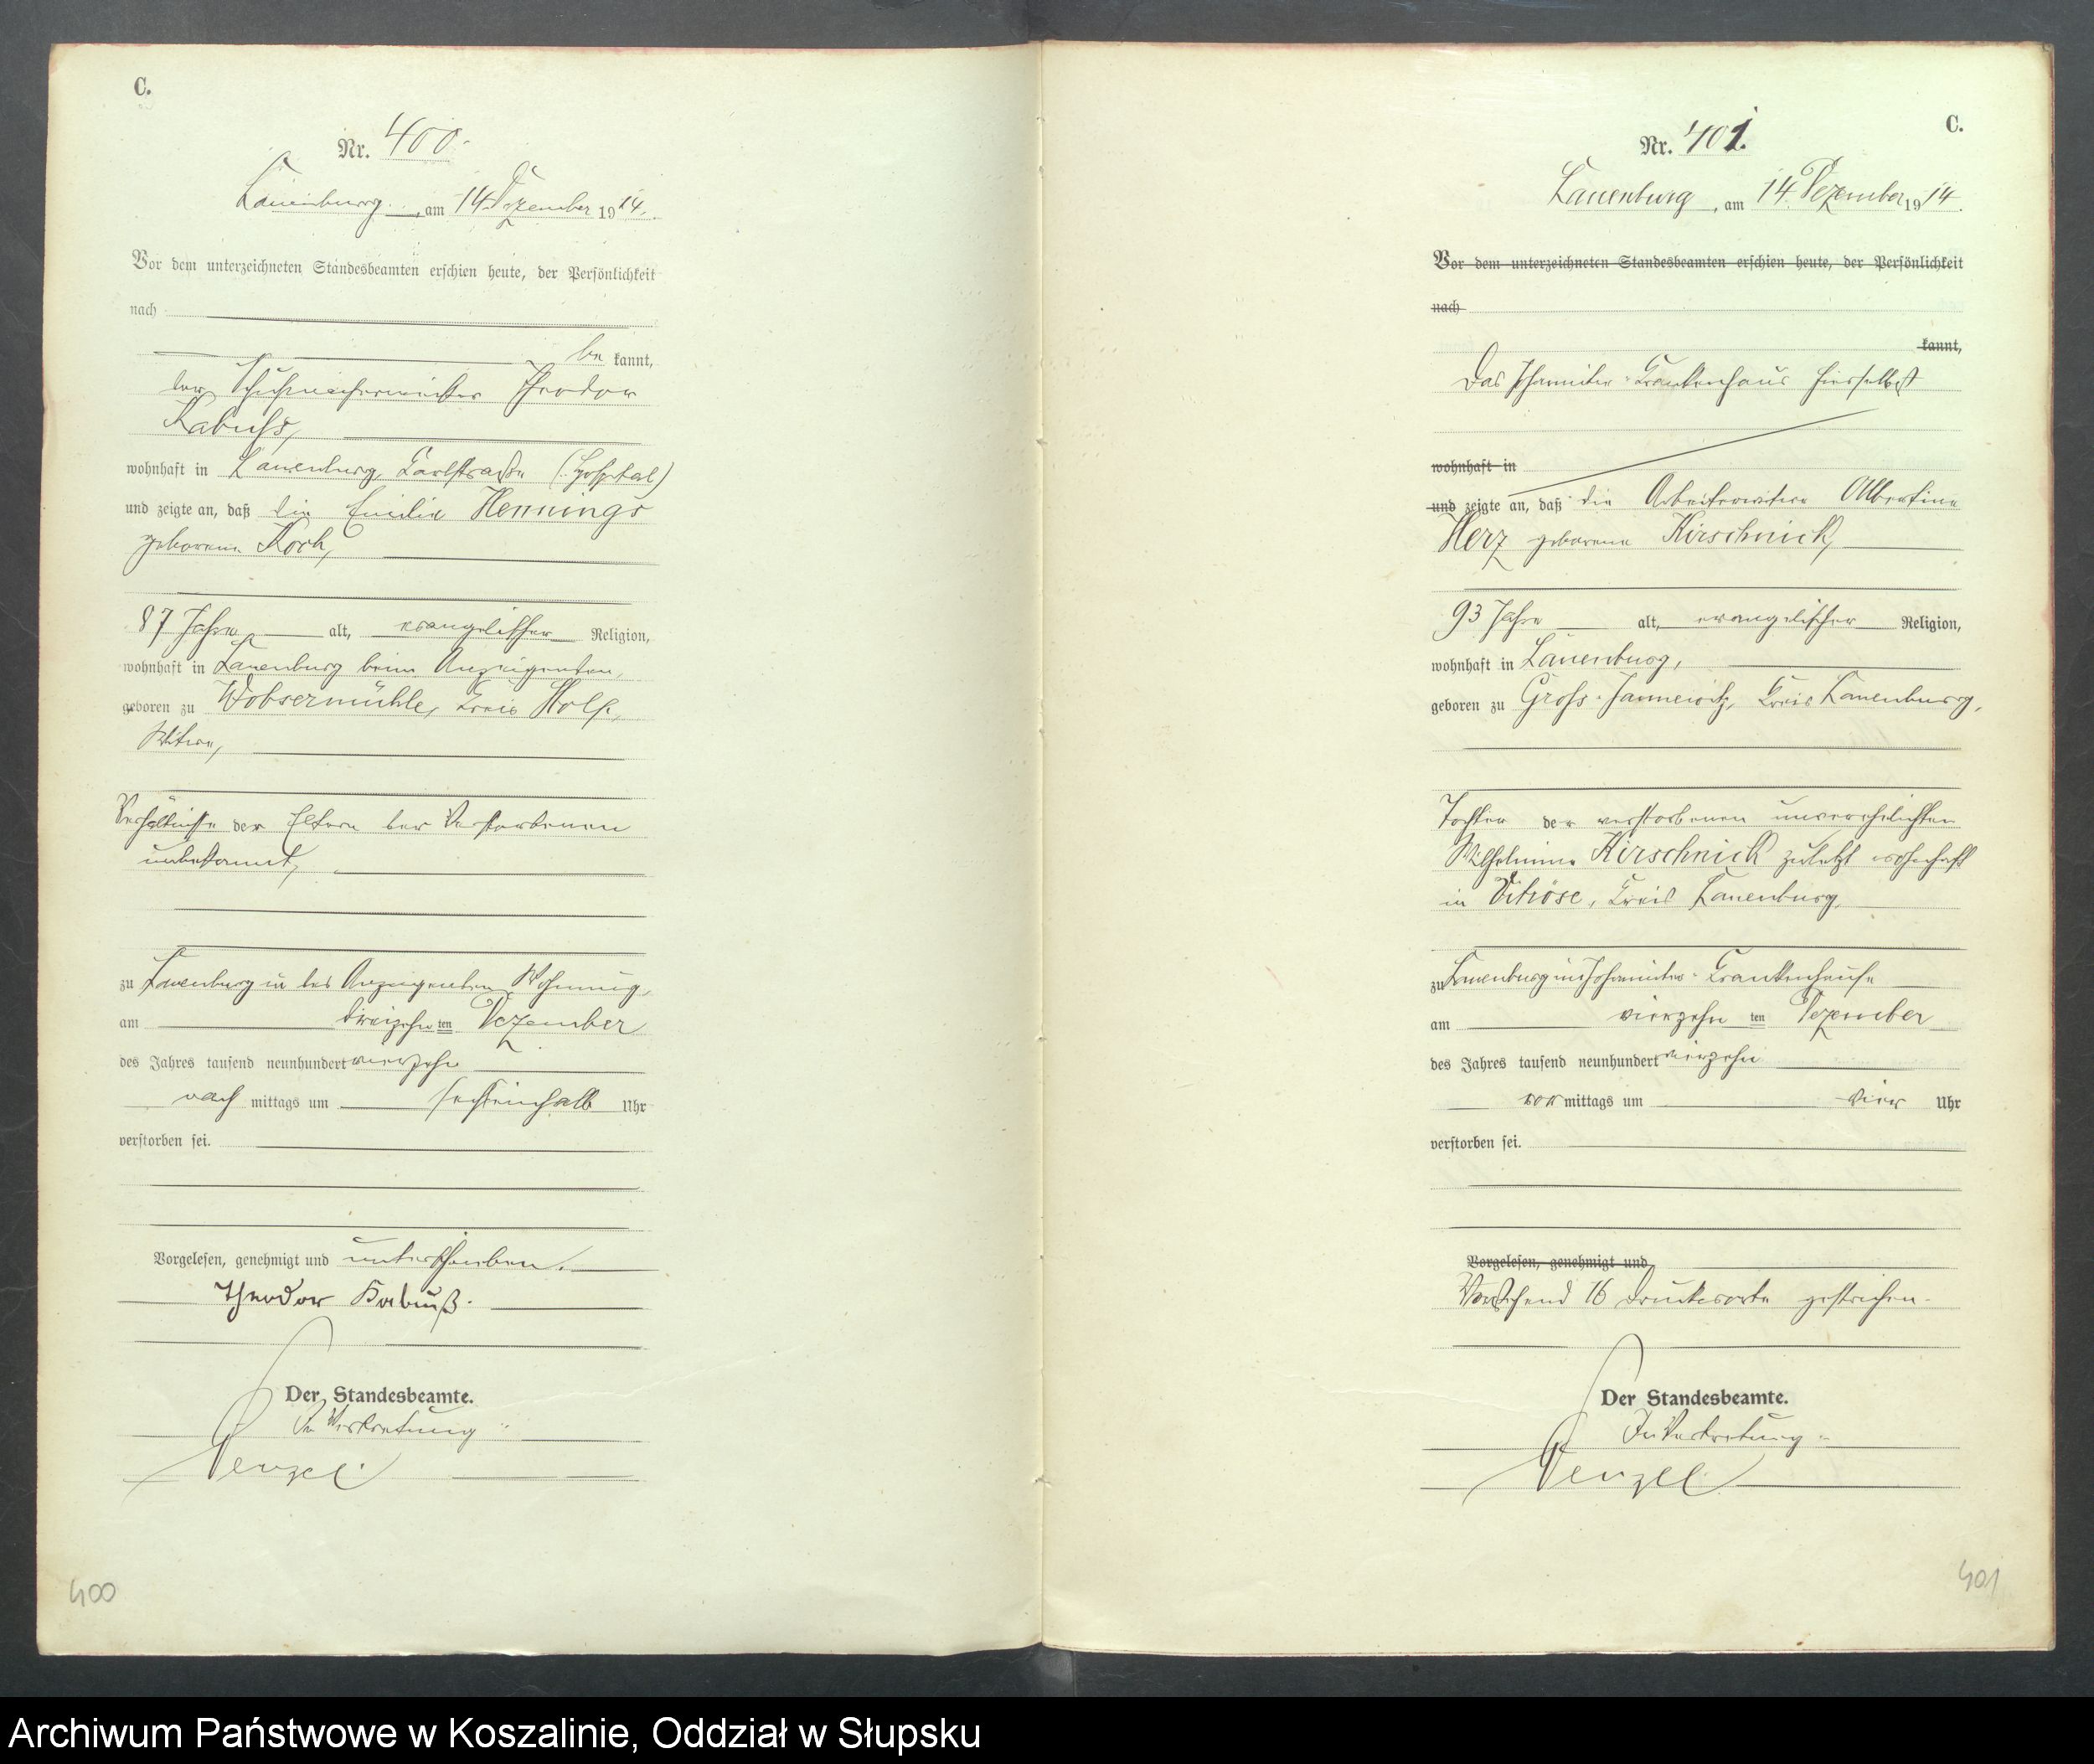 C.
Nr. 400.
Lauenburg, am 14. Dezember 1914.
Vor dem unterzeichneten Standesbeamten erschien heute, der Persönlichkeit
nach
be kannt,
der Schuhmachermeister Theodor
Kabuss,
wohnhaft in Lauenburg, Karlstraße (Hospital)
und zeigte an, daß die Emilie Hennings
geborene Koch,
87 Jahre alt, evangelischer Religion,
wohnhaft in Lauenburg beim Anzeigenden,
geboren zu Wobsermühle, Kreis Stolp,
Witwe,
Verhältnisse der Eltern der Verstorbenen
unbekannt,
zu Lauenburg in des Anzeigenden Wohnung,
am dreizehn ten Dezember
des Jahres tausend neunhundert vierzehn
nach mittags um sechseinhalb Uhr
verstorben sei.
Vorgelesen, genehmigt und unterschrieben.
Theodor Kabuß.
Der Standesbeamte.
In Vertretung:
Wenzel.
400
C.
Nr. 401.
Lauenburg, am 14. Dezember 1914.
Vor dem unterzeichneten Standesbeamten erschien heute, der Persönlichkeit
nach
kannt,
Das Johanniter-Krankenhaus hierselbst
wohnhaft in
und zeigte an, daß die Arbeiterwitwe Albertine
Herz geborene Kirschnick,
93 Jahre alt, evangelischer Religion,
wohnhaft in Lauenburg,
geboren zu Gross-Jannewitz, Kreis Lauenburg,
Tochter der verstorbenen unverehelichten
Wilhelmine Kirschnick zuletzt wohnhaft
in Vitröse, Kreis Lauenburg,
zu Lauenburg im Johanniter-Krankenhause
am vierzehn ten Dezember
des Jahres tausend neunhundert vierzehn
vor mittags um vier Uhr
verstorben sei.
Vorgelesen, genehmigt und
Vorstehend 16 Druckworte gestrichen.
Der Standesbeamte.
In Vertretung:
Wenzel.
401
Archiwum Państwowe w Koszalinie, Oddział w Słupsku